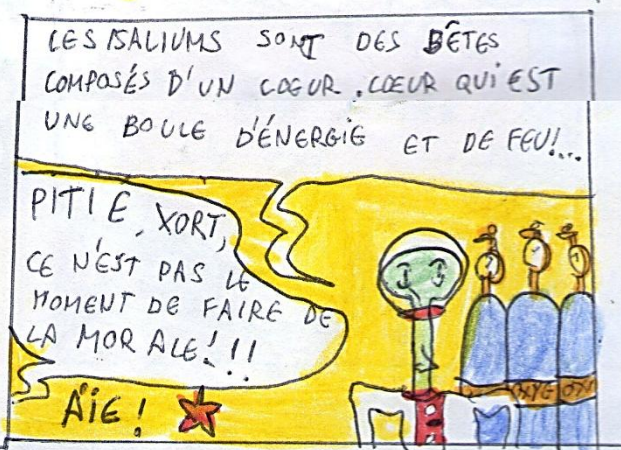 LES ISALIUMS SONT DES BÊTES
COMPOSÉS D'UN COEUR. COEUR QUI EST
UNE BOULE D'ÉNERGIE ET DE FEU!...
PITIE, XORT,
CE N'EST PAS LE
MOMENT DE FAIRE DE
LA MORALE!!!
AÏE!
OXYG OXY